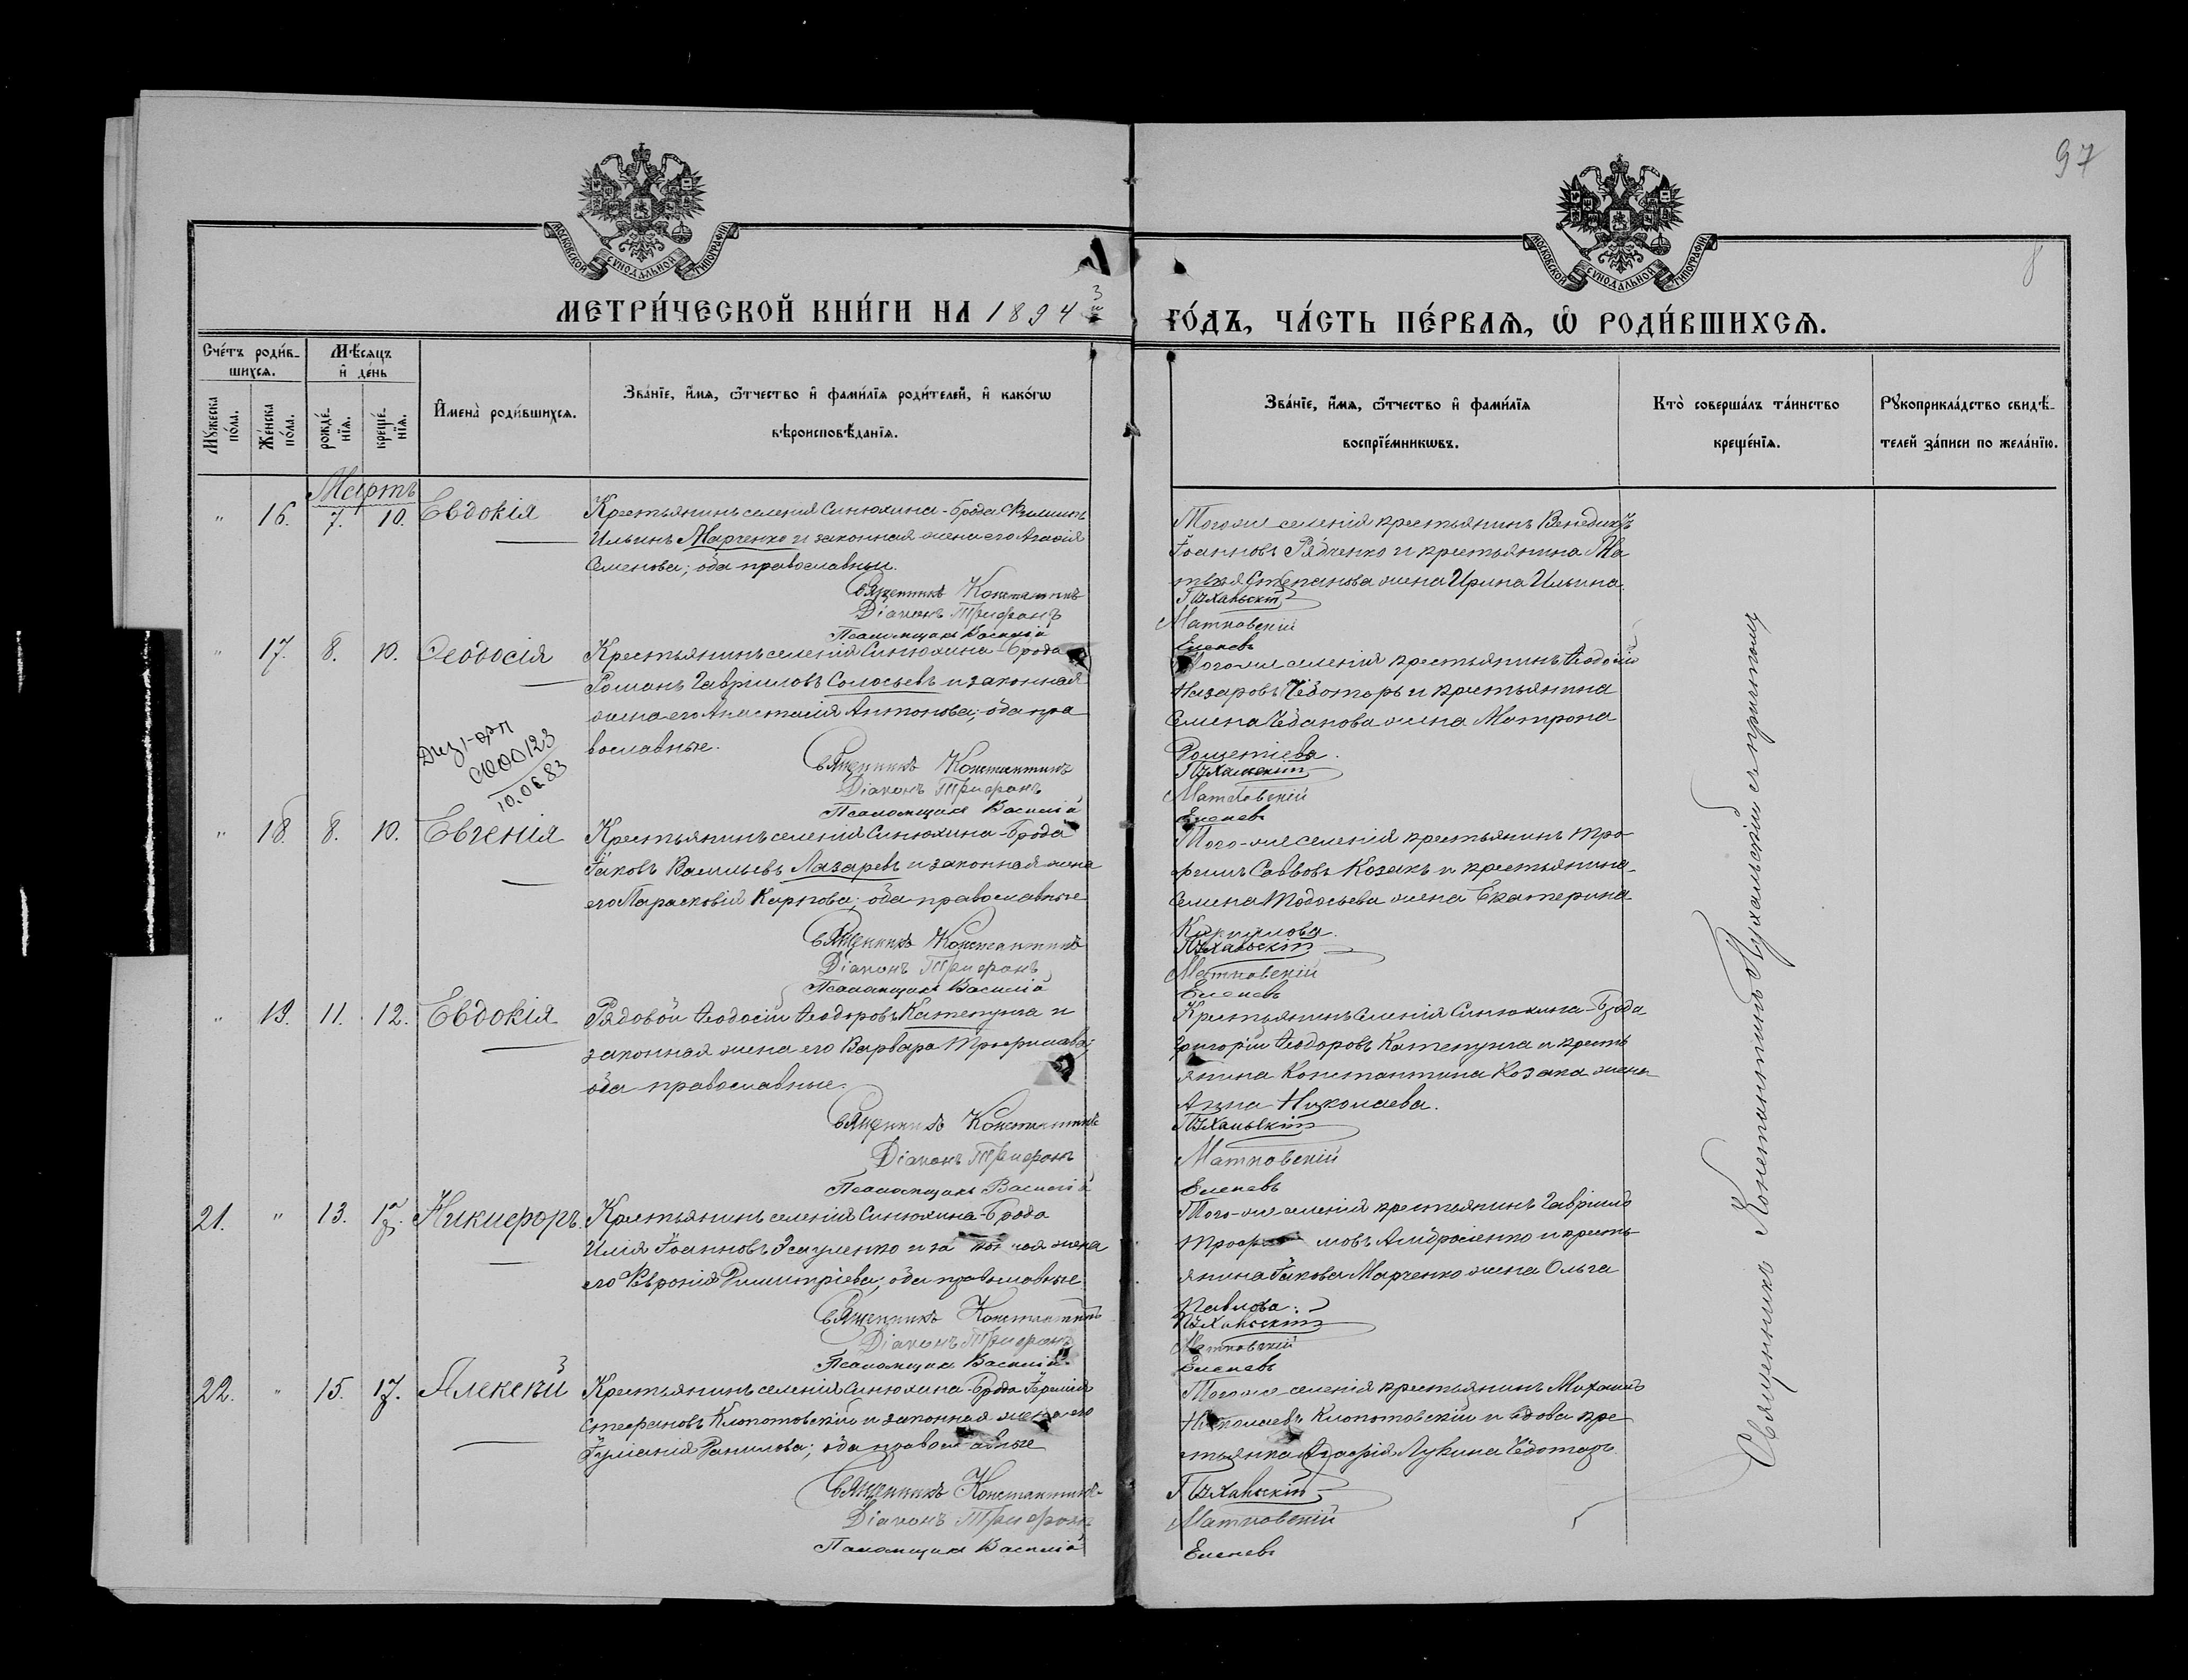 97
8
МОСКОВСКОЙ СѴНОДАЛЬНОЙ ТИПОГРАФІИ
МОСКОВСКОЙ СѴНОДАЛЬНОЙ ТИПОГРАФІИ
МЕТРИ́ЧЕСКОЙ КНИ́ГИ НА 1894 й
ГО́ДЪ, ЧА́СТЬ ПЕ́РВАѦ, Ѽ РОДИ́ВШИХСѦ.
Сче́тъ роди́в-
шихсѧ.
Мѣ́сѧцъ
и҆ де́нь
Мꙋ́жеска по́ла.
Же́нска по́ла.
рожде́-нїѧ.
креще́-нїѧ.
И҆мена̀ роди́вшихсѧ.
Зва́нїе, и҆́мѧ, ѻ҆́тчество и҆ фами́лїѧ роди́телей, и҆ како́гѡ
вѣроисповѣ́данїѧ.
Зва́нїе, и҆́мѧ, ѻ҆́тчество и҆ фами́лїѧ
воспрїе́мникѡвъ.
Кто̀ соверша́лъ та́инство
креще́нїѧ.
Рꙋкоприкла́дство свидѣ́-
телей за́писи по жела́нїю.
Мартъ
" 16. 7. 10. Евдокія
Крестьянинъ селенія Синюхина-Брода Филиппъ
Ильинъ Марченко и законная жена его Агафія
Семенова; оба православные.
Священникъ Константинъ
Діаконъ Трифонъ
Псаломщикъ Василій
Тогоже селенія крестьянинъ Венедиктъ
Іоанновъ Рядченко и крестьянина Ма-
твѣя Степанова жена Ирина Ильина.
Пухальскій
Матковскій
Еленевъ
" 17. 8. 10. Ѳеодосія
Крестьянинъ селенія Синюхина-Брода
Романъ Гавріиловъ Солосьевъ и законная
жена его Анастасія Антонова; оба пра-
вославные.
Священникъ Константинъ
Діаконъ Трифонъ
Псаломщикъ Василій
Тогоже селенія крестьянинъ Ѳеодосій
Назаровъ Чеботарь и крестьянина
Семена Чебанова жена Матрона
Пухальскій
Матковскій
Еленевъ
000123
10.06.83
" 18. 8. 10. Евгенія
Крестьянинъ селенія Синюхина-Брода
Іаковъ Васильевъ Лазаревъ и законная жена
его Парасковія Карпова; оба православные
Священникъ Константинъ
Діаконъ Трифонъ
Псаломщикъ Василій
Того-же селенія крестьянинъ Тро-
фимъ Саввовъ Козакъ и крестьянина
Семена Тодосьева жена Екатерина
Кириллова.
Пухальскій
Матковскій
Еленевъ
" 19. 11. 12. Евдокія
Рядовой Ѳеодосій Ѳеодоровъ Катепуга и
законная жена его Варвара Трофимова;
оба православные.
Священникъ Константинъ
Діаконъ Трифонъ
Псаломщикъ Василій
Крестьянинъ селенія Синюхина-Брода
Григорій Ѳеодоровъ Катепуга и кресть-
янина Константина Козака жена
Анна Николаева.
Пухальскій
Матковскій
Еленевъ
21. " 13. 17. Никифоръ.
Крестьянинъ селенія Синюхина-Брода
Илія Іоанновъ Эсауленко и законная жена
его Февронія Димитріева; оба православные
Священникъ Константинъ
Діаконъ Трифонъ
Псаломщикъ Василій
Того-же селенія крестьянинъ Гавріилъ
Трофимовъ Амбросіенко и кресть-
янина Іакова Марченко жена Ольга
Павлова.
Пухальскій
Матковскій
Еленевъ
22. " 15. 17. Алексѣй
Крестьянинъ селенія Синюхина-Брода Іеремія
Стефановъ Клопотовскій и законная жена его
Іуліанія Данилова; оба православные
Священникъ Константинъ
Діаконъ Трифонъ
Псаломщикъ Василій
Тогоже селенія крестьянинъ Михаилъ
Николаевъ Клопотовскій и вдова кре-
стьянка Агафія Лукина Чеботарь.
Пухальскій
Матковскій
Еленевъ
Священникъ Константинъ Пухальскій съ причтомъ